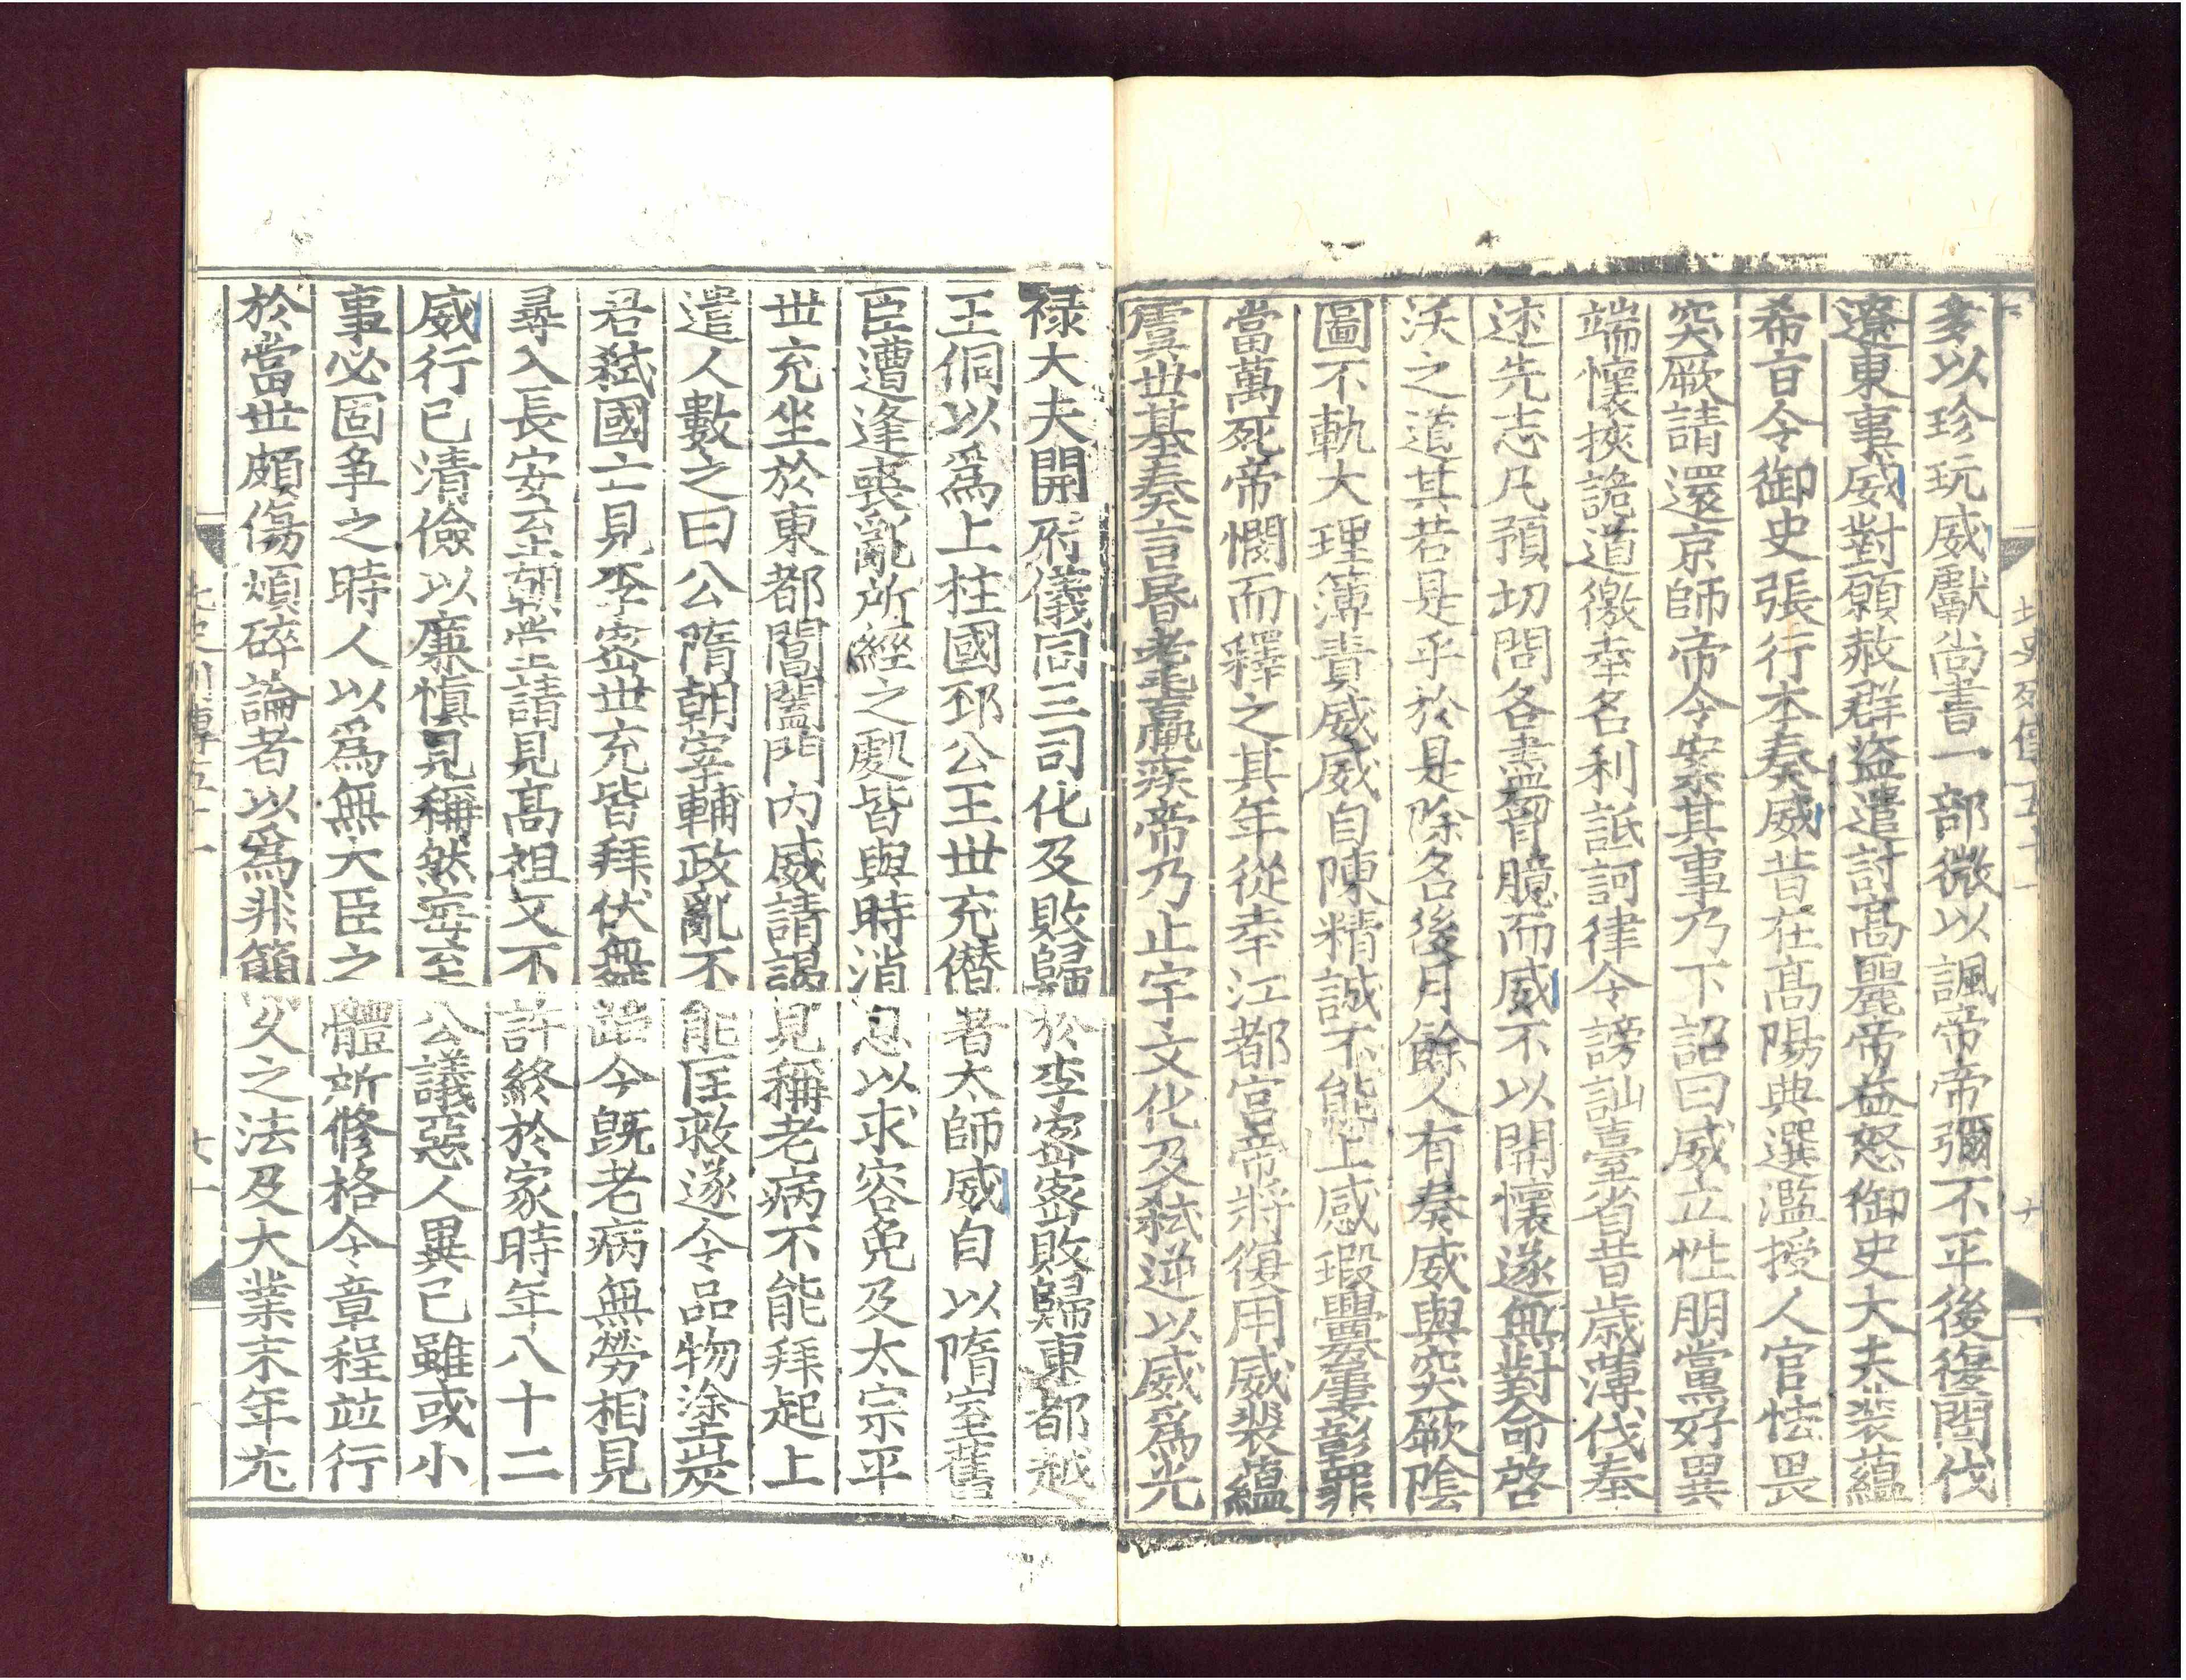 多以珍玩威獻尚書一部微以諷帝帝彌不平後復問伐
遼東事威對願赦群盜遣討髙麗帝益怒御史大夫裴蘊
希旨令御史張行本奏威昔在髙陽典選濫授人官怯畏
突厥請還京師帝令案其事乃下詔曰威立性朋黨好異
端懷挾詭道徼幸名利詆訶律令謗訕臺省昔歳薄伐奉
述先志凡預切問各盡智臆而威不以開懷遂無對命啓
沃之道其若是乎於是除名後月餘人有奏威與突厥隂
圖不軌大理簿責威威自陳精誠不能上感瑕舋屢彰罪
當萬死帝憫而釋之其年從幸江都宫帝將復用威裴蘊
虞世基奏言昏耄羸疾帝乃止宇文化及弑逆以威爲光
禄大夫開府儀同三司化及敗歸於李密密敗歸東都越
王侗以爲上柱國邳公王世充僣者太師威自以隋室舊
臣遭逢喪亂所經之處皆與時消息以求容免及太宗平
世充坐於東都閶闔門内威請謁見稱老病不能拜起上
遣人數之曰公隋朝宰輔政亂不能匡救遂令品物塗炭
君弑國亡見李密世充皆拜伏舞蹈今旣老病無勞相見
尋入長安至朝堂請見髙祖又不許終於家時年八十二
威行已清儉以廉慎見稱然每至公議惡人異己雖或小
事必固争之時人以爲無大臣之體所修格令章程並行
於當世頗傷煩碎論者以爲非簡久之法及大業末年尤